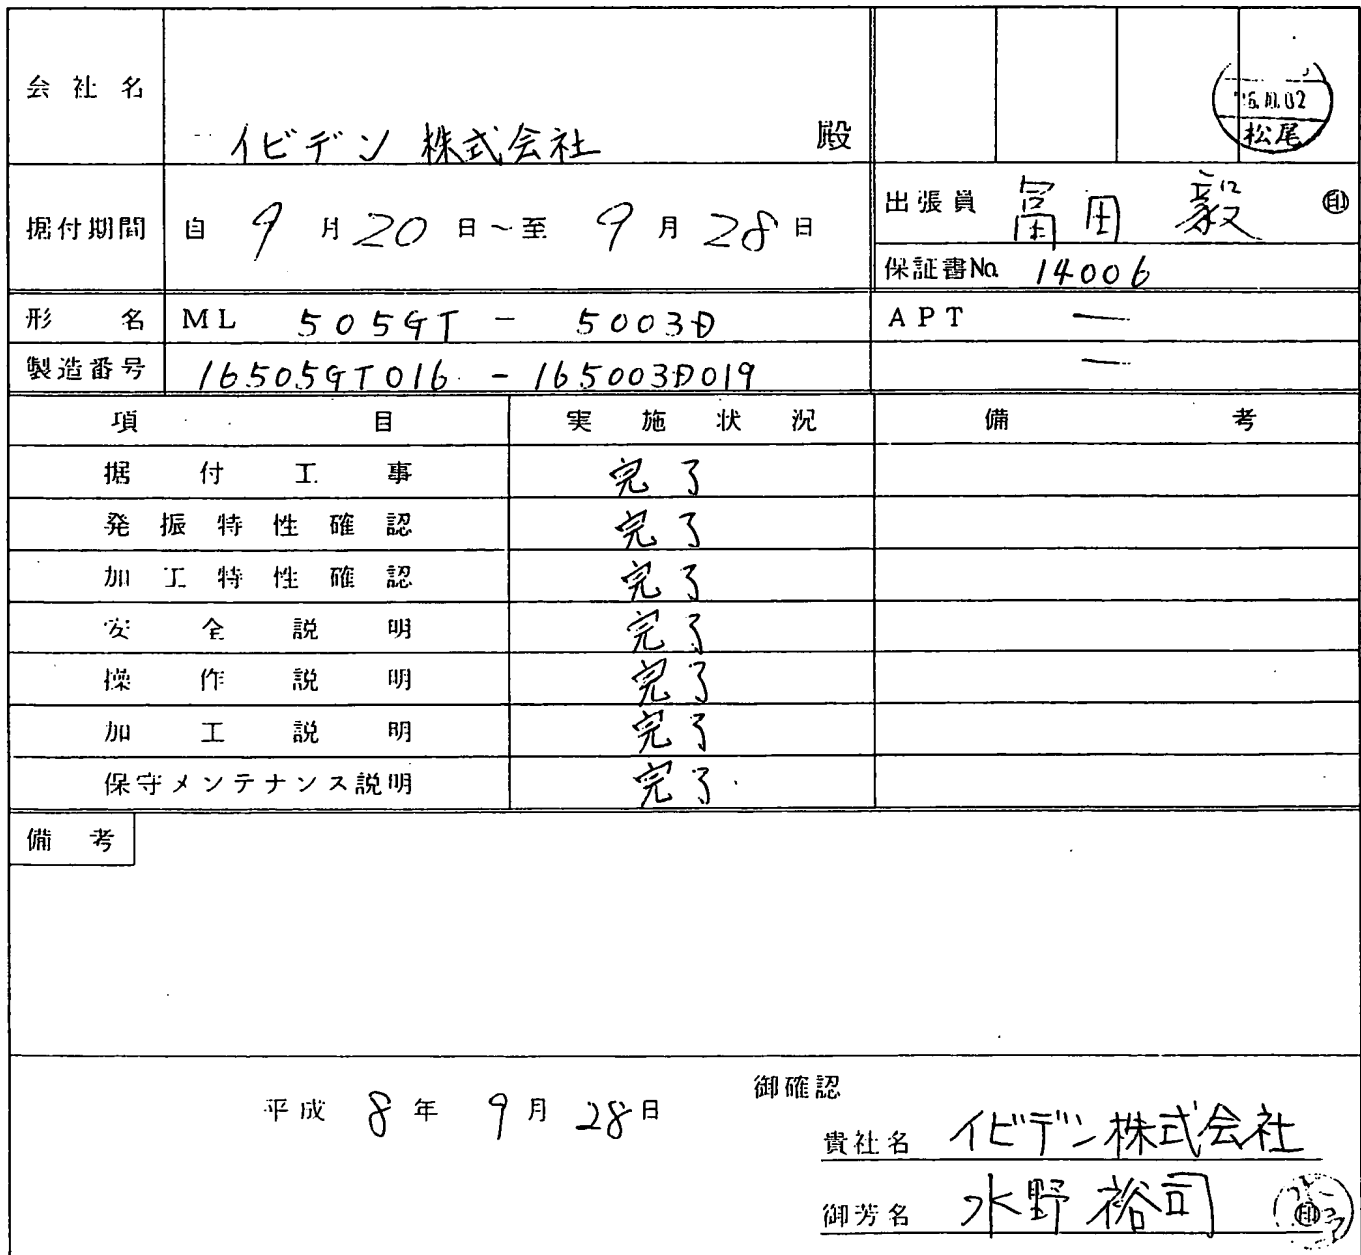 会社名 イビデン 株式会社 殿
松尾
据付期間 自 9月20日~至 9月28日
出張員 冨田 毅 ㊞
保証書No. 14006
形名 ML 505GT - 5003D APT —
製造番号 16505GT016 - 165003D019 —
項目 実施状況 備考
据付工事 完了
発振特性確認 完了
加工特性確認 完了
安全説明 完了
操作説明 完了
加工説明 完了
保守メンテナンス説明 完了
備考
平成 8年 9月 28日
御確認
貴社名 イビデン株式会社
御芳名 水野 裕司 ㊞